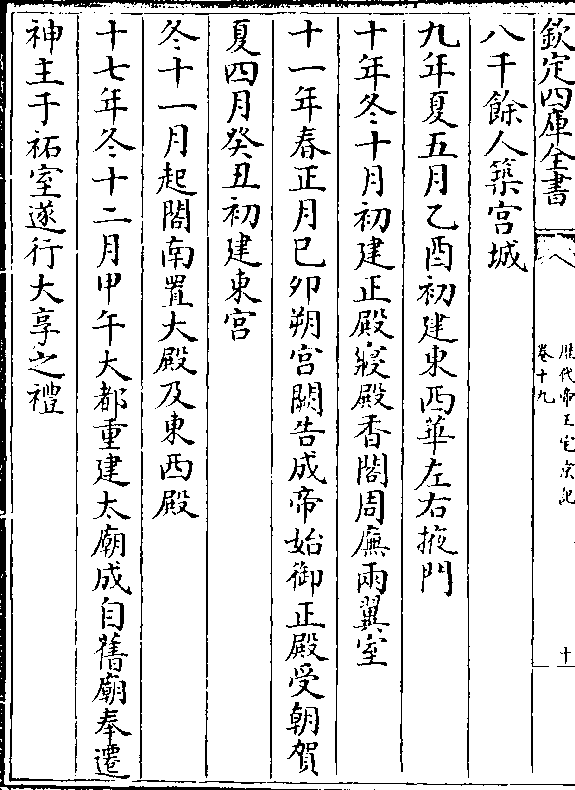 欽定四庫全書
歷代帝王宅京記
卷十九
十
八千餘人築宮城
九年夏五月乙酉初建東西華左右掖門
十年冬十月初建正殿寢殿香閣周廡兩翼室
十一年春正月己卯朔宮闕告成帝始御正殿受朝賀
夏四月癸丑初建東宮
冬十一月起閣南置大殿及東西殿
十七年冬十二月甲午大都重建太廟成自舊廟奉遷
神主于祏室遂行大享之禮